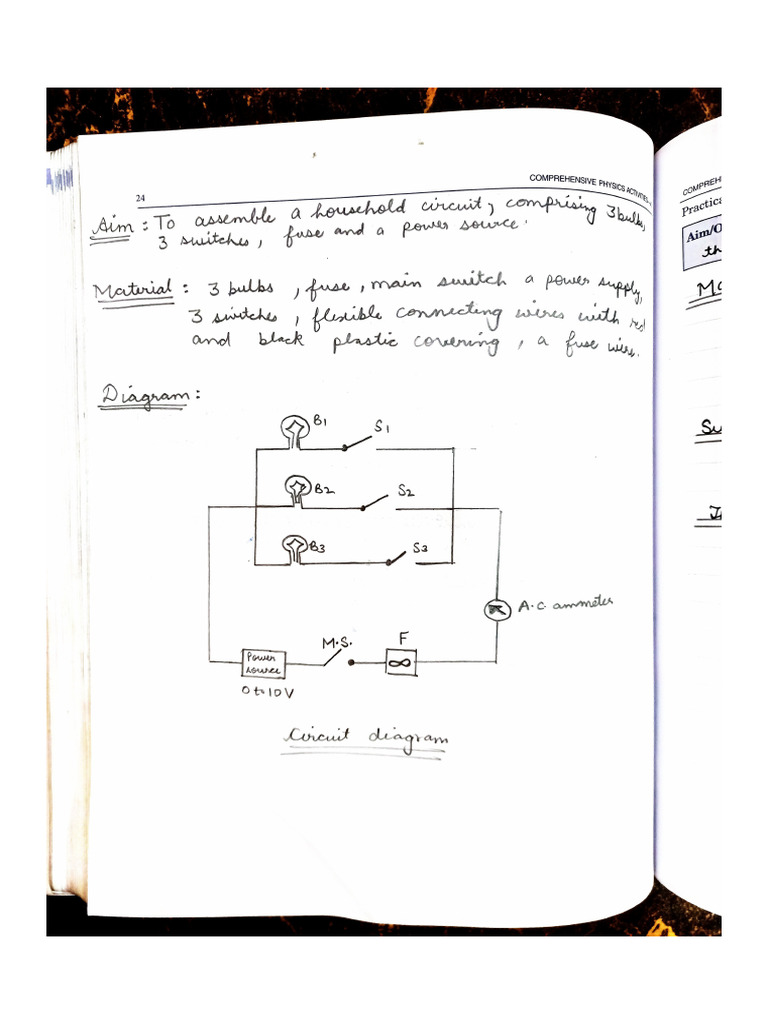 COMPREHENSIVE PHYSICS ACTIVITIES
24
Aim : To assemble a household circuit, comprising 3 bulbs,
3 switches, fuse and a power source.
Material : 3 bulbs , fuse , main switch a power supply,
3 switches , flexible connecting wires with red
and black plastic covering , a fuse wire.
Diagram :
B1
S1
B2
S2
B3
S3
A.C. ammeter
M.S.
F
Power
source
0 to 10V
Circuit diagram
COMPREH
Practica
Aim/O
th
Ma
Su